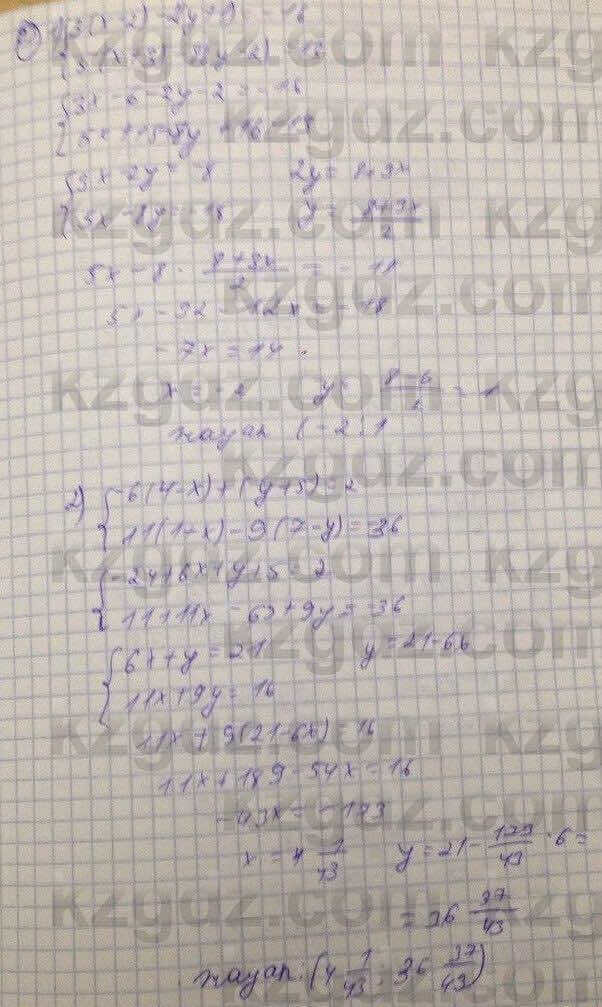 3x - 6 - 2y - 2 = -16
3x - 2y = -8 2y = 8 + 3x
5x - 8y = -18 y = 8+3x/2
5x - 8 · 8+3x/2 = -18
5x - 32 - 12x = -18
-7x = 14
x = -2 y = 8-6/2 = 1
жауап (-2; 1
2) -6(4-x)+(y+5)=2
11(1-x)-9(7-y)=-36
-24+6x+y+5=2
11+11x-63+9y=-36
6x+y=21 y=21-6x
11x+9y=16
11x+9(21-6x)=16
11x+189-54x=16
-43x=-173
x = 4 1/43 y = 21 - 173/43 · 6 =
= 36 37/43
жауап: (4 1/43; 36 37/43)
kzgdz.com